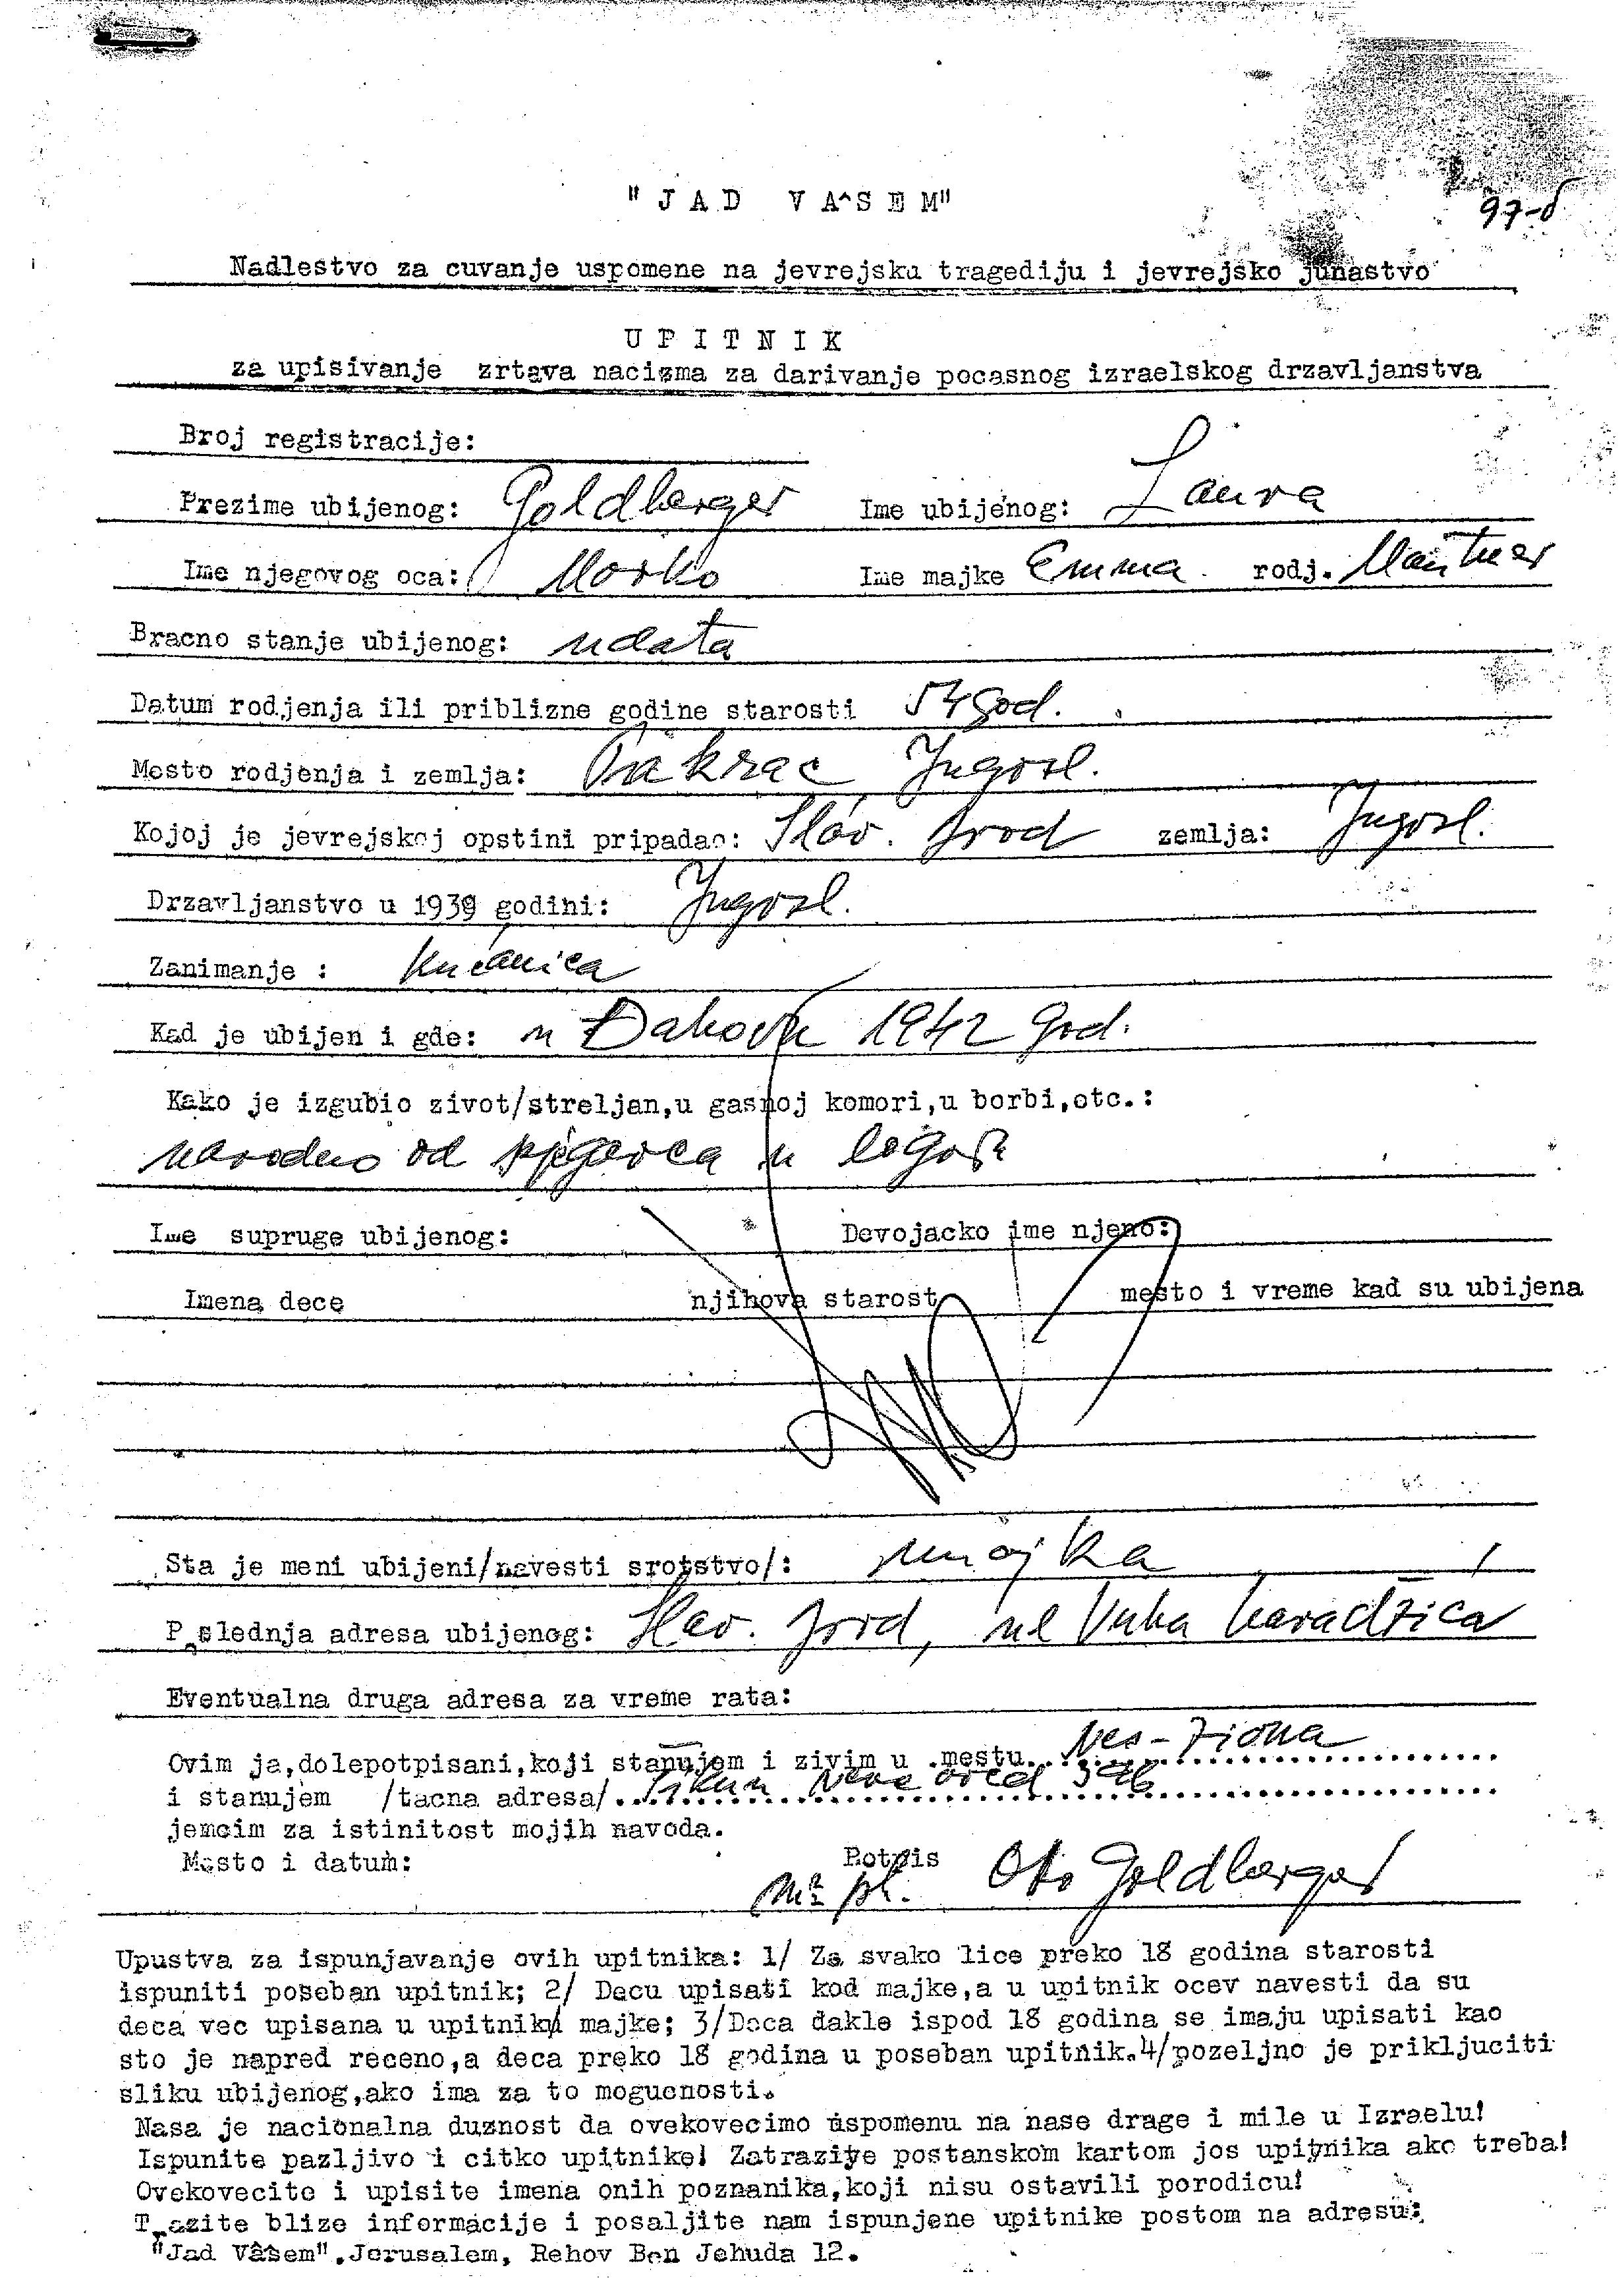 97-d
"JAD VA^SEM"
Nadlestvo za cuvanje uspomene na jevrejsku tragediju i jevrejsko junastvo
UPITNIK
za upisivanje zrtava nacizma za darivanje pocasnog izraelskog drzavljanstva
Broj registracije:
Prezime ubijenog: Goldberger Ime ubijenog: Laura
Ime njegovog oca: Marko Ime majke Emma rodj. Mautner
Bracno stanje ubijenog: udata
Datum rodjenja ili priblizne godine starosti 54 god.
Mesto rodjenja i zemlja: Pakrac Jugosl.
Kojoj je jevrejskoj opstini pripadao: Slav. Brod zemlja: Jugosl.
Drzavljanstvo u 1939 godini: Jugosl.
Zanimanje : kućanica
Kad je ubijen i gde: u Đakovu 1942 god.
Kako je izgubio zivot/streljan,u gasnoj komori,u borbi,etc.:
navodno od pjegavca u logoru
Ime supruge ubijenog: Devojacko ime njeno:
Imena dece njihova starost mesto i vreme kad su ubijena
Sta je meni ubijeni/navesti srotstvo/: majka
P slednja adresa ubijenog: Slav. Brod, ul Vuka Karadžića
Eventualna druga adresa za vreme rata:
Ovim ja,dolepotpisani,koji stanujem i zivim u mestu Nes-Ziona
i stanujem /tacna adresa/ Šikun Neve Oved 396
jemcim za istinitost mojih navoda.
Mesto i datum: Potpis
Oto Goldberger
Upustva za ispunjavanje ovih upitnika: 1/ Za svako lice preko 18 godina starosti
ispuniti poseban upitnik; 2/ Decu upisati kod majke,a u upitnik ocev navesti da su
deca vec upisana u upitniku majke; 3/Deca dakle ispod 18 godina se imaju upisati kao
sto je napred receno,a deca preko 18 godina u poseban upitnik.4/pozeljno je prikljuciti
sliku ubijenog,ako ima za to mogucnosti.
Nasa je nacionalna duznost da ovekovecimo uspomenu na nase drage i mile u Izraelu!
Ispunite pazljivo i citko upitnike! Zatrazite postanskom kartom jos upitnika ako treba!
Ovekovecite i upisite imena onih poznanika,koji nisu ostavili porodicu!
T azite blize informacije i posaljite nam ispunjene upitnike postom na adresu:
"Jad Vâsem".Jerusalem, Rehov Ben Jehuda 12.